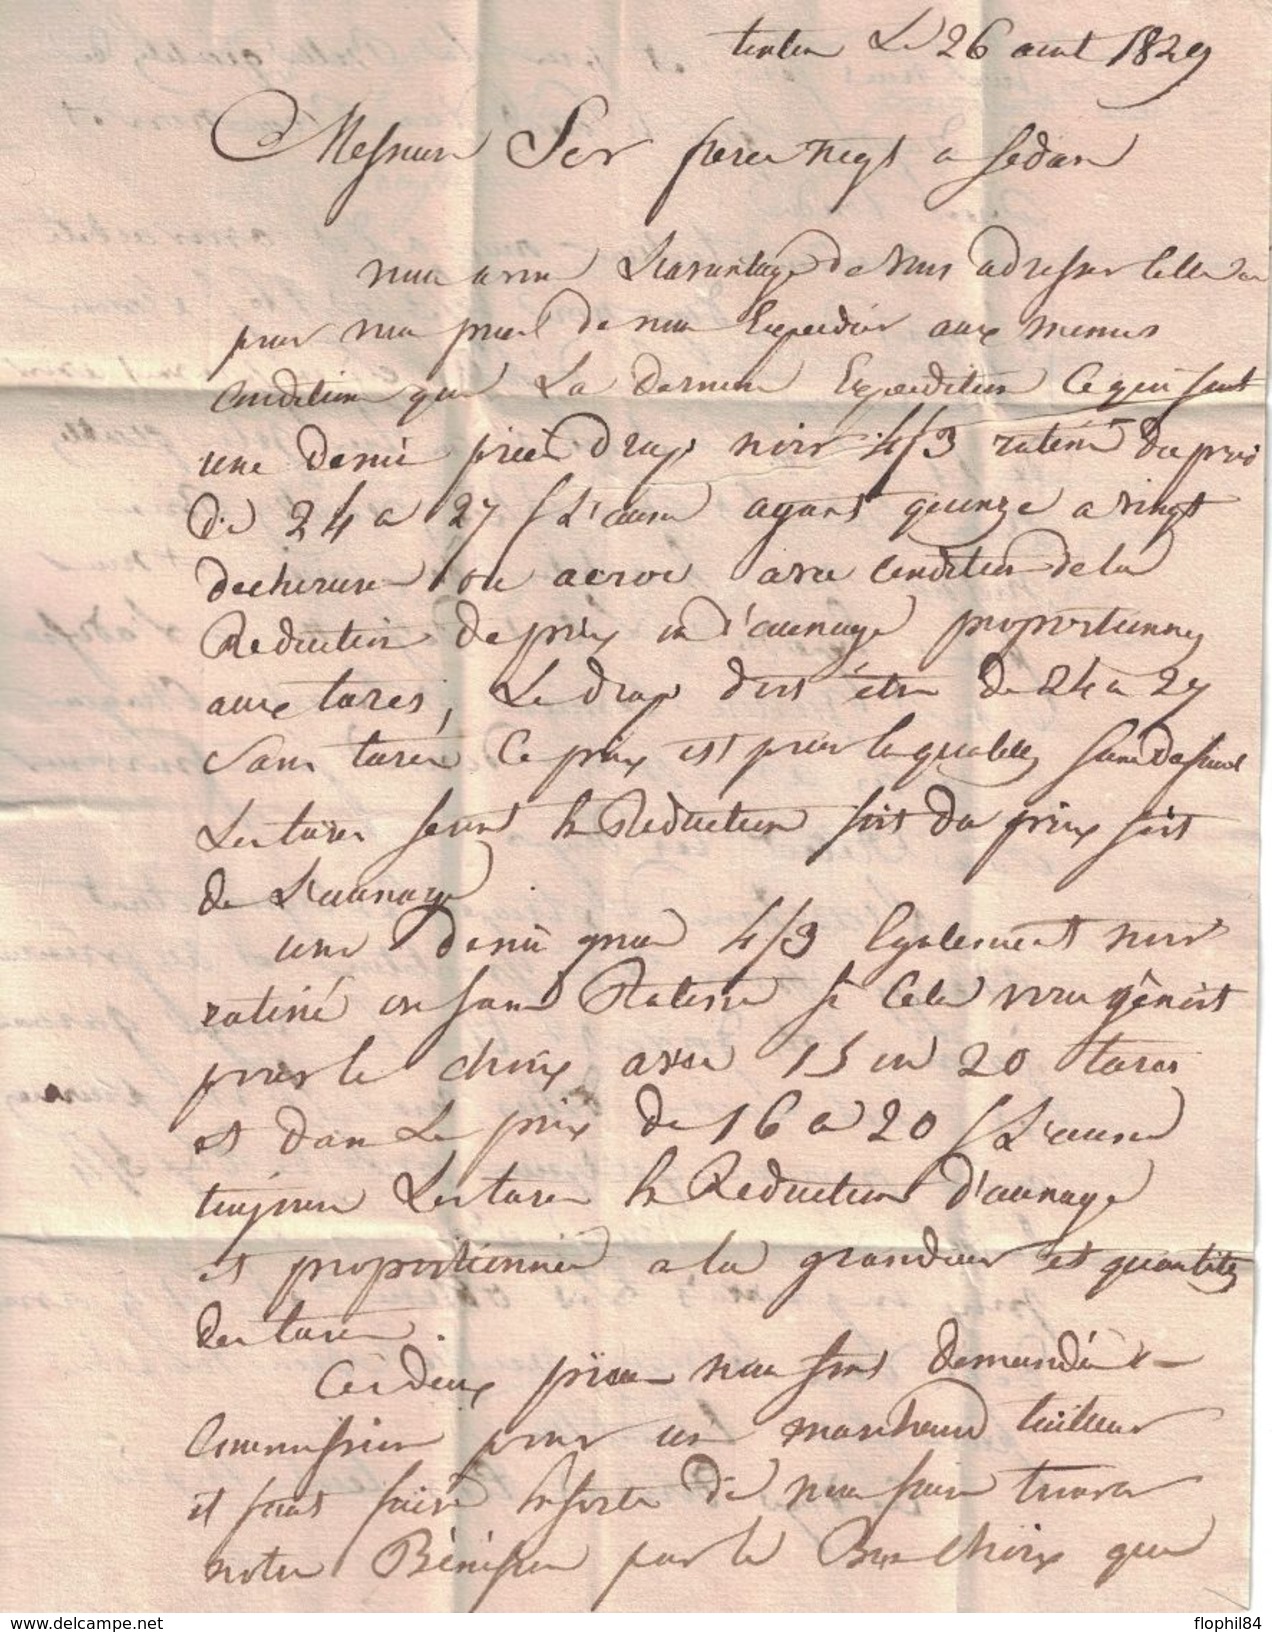 toulon Le 26 aout 1829
Messieurs Ser freres negts a Sedan
nous avons L'avantage de vous adresser celle ci
pour vous prier de nous Expedier aux memes
condition que La derniere Expedition Ce qui suit
une demie piece drap noir 4/3 ratiné du prix
De 24 a 27 f L'aune ayant quinze a vingt
dechirures ou acroc avec condition de la
Reduction de prix ou d'aunage proportionnés
aux tares, Le drap dois être de 24 a 27
sans tares Ce prix est pour la qualité sans defaut
Les tares seront la Reduction soit du prix soit
de L'aunage
une demie piece 4/3 Egalement noir
ratiné ou sans Ratine si cela vous gênoit
pour le choix avec 15 ou 20 tares
et dans Le prix de 16 a 20 f L'aune
toujours Les tares la Reduction d'aunage
et proportionnée a la grandeur et quantité
des tares.
Ces deux pieces nous sont demandées
Commission pour un marchand tailleur
il faut faire la sorte de nous faire trouver
notre Bénéfice par le Bon Choix que
www.delcampe.net
flophil84